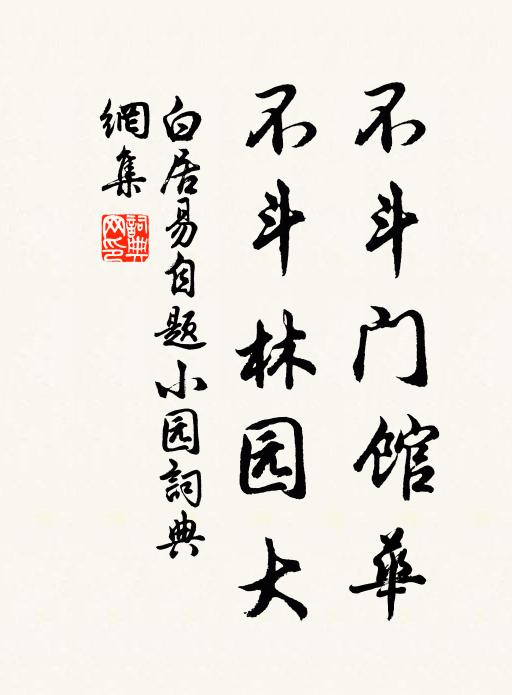 不斗门馆华
不斗林园大
白居易自题小园詞典
網集
詞典
网印